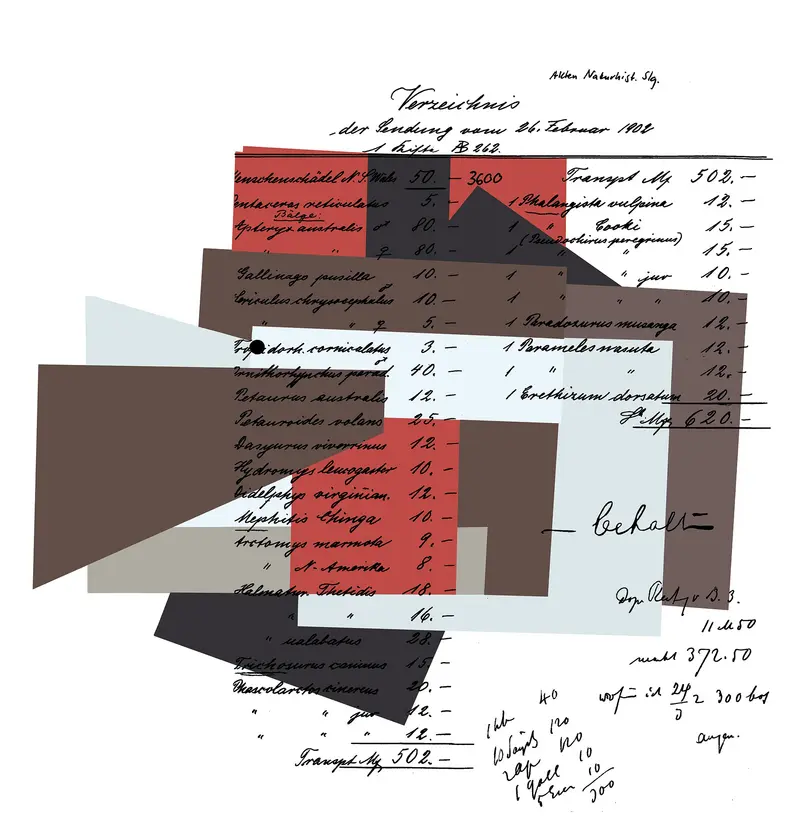 Akten Naturhist. Slg.
Verzeichnis
der Sendung vom 26. Februar 1902
1 Kiste 262.
Menschenschädel N. S. Wales 50. —
3600
Pentaceros reticulatus 5. —
Bälge:
Apteryx australis ♂ 80. —
" " ♀ 80. —
Gallinago pusilla 10. —
Oriculus chrysocephalus ♂ 10. —
" " ♀ 5. —
Tropidorh. corniculatus 3. —
Ornithorhynchus parad. ♂ 40. —
Petaurus australis 12. —
Petauroides volans 25. —
Dasyurus viverrinus 12. —
Hydromys leucogaster 10. —
Didelphys virginian. 12. —
Mephitis Chinga 10. —
Arctomys marmota 9. —
" N. Amerika 8. —
Halmatur. Thetidis 18. —
" " 16. —
" ualabatus 28. —
Trichosurus caninus 15. —
Phascolarctos cinereus 20. —
" " jur 12. —
" " " 12. —
Transpt Mk 502. —
Transpt Mk 502. —
1 Phalangista vulpina 12. —
1 " Cooki 15. —
(Pseudochirus peregrinus)
1 " " 15. —
1 " " jur 10. —
1 " " " 10. —
1 Paradoxurus musanga 12. —
1 Parameles nasuta 12. —
1 " " 12. —
1 Erethizum dorsatum 20. —
Mk 620. —
— behalt —
11 M 50
macht 372.50
300
40
120
120
1 gall 10
10
300